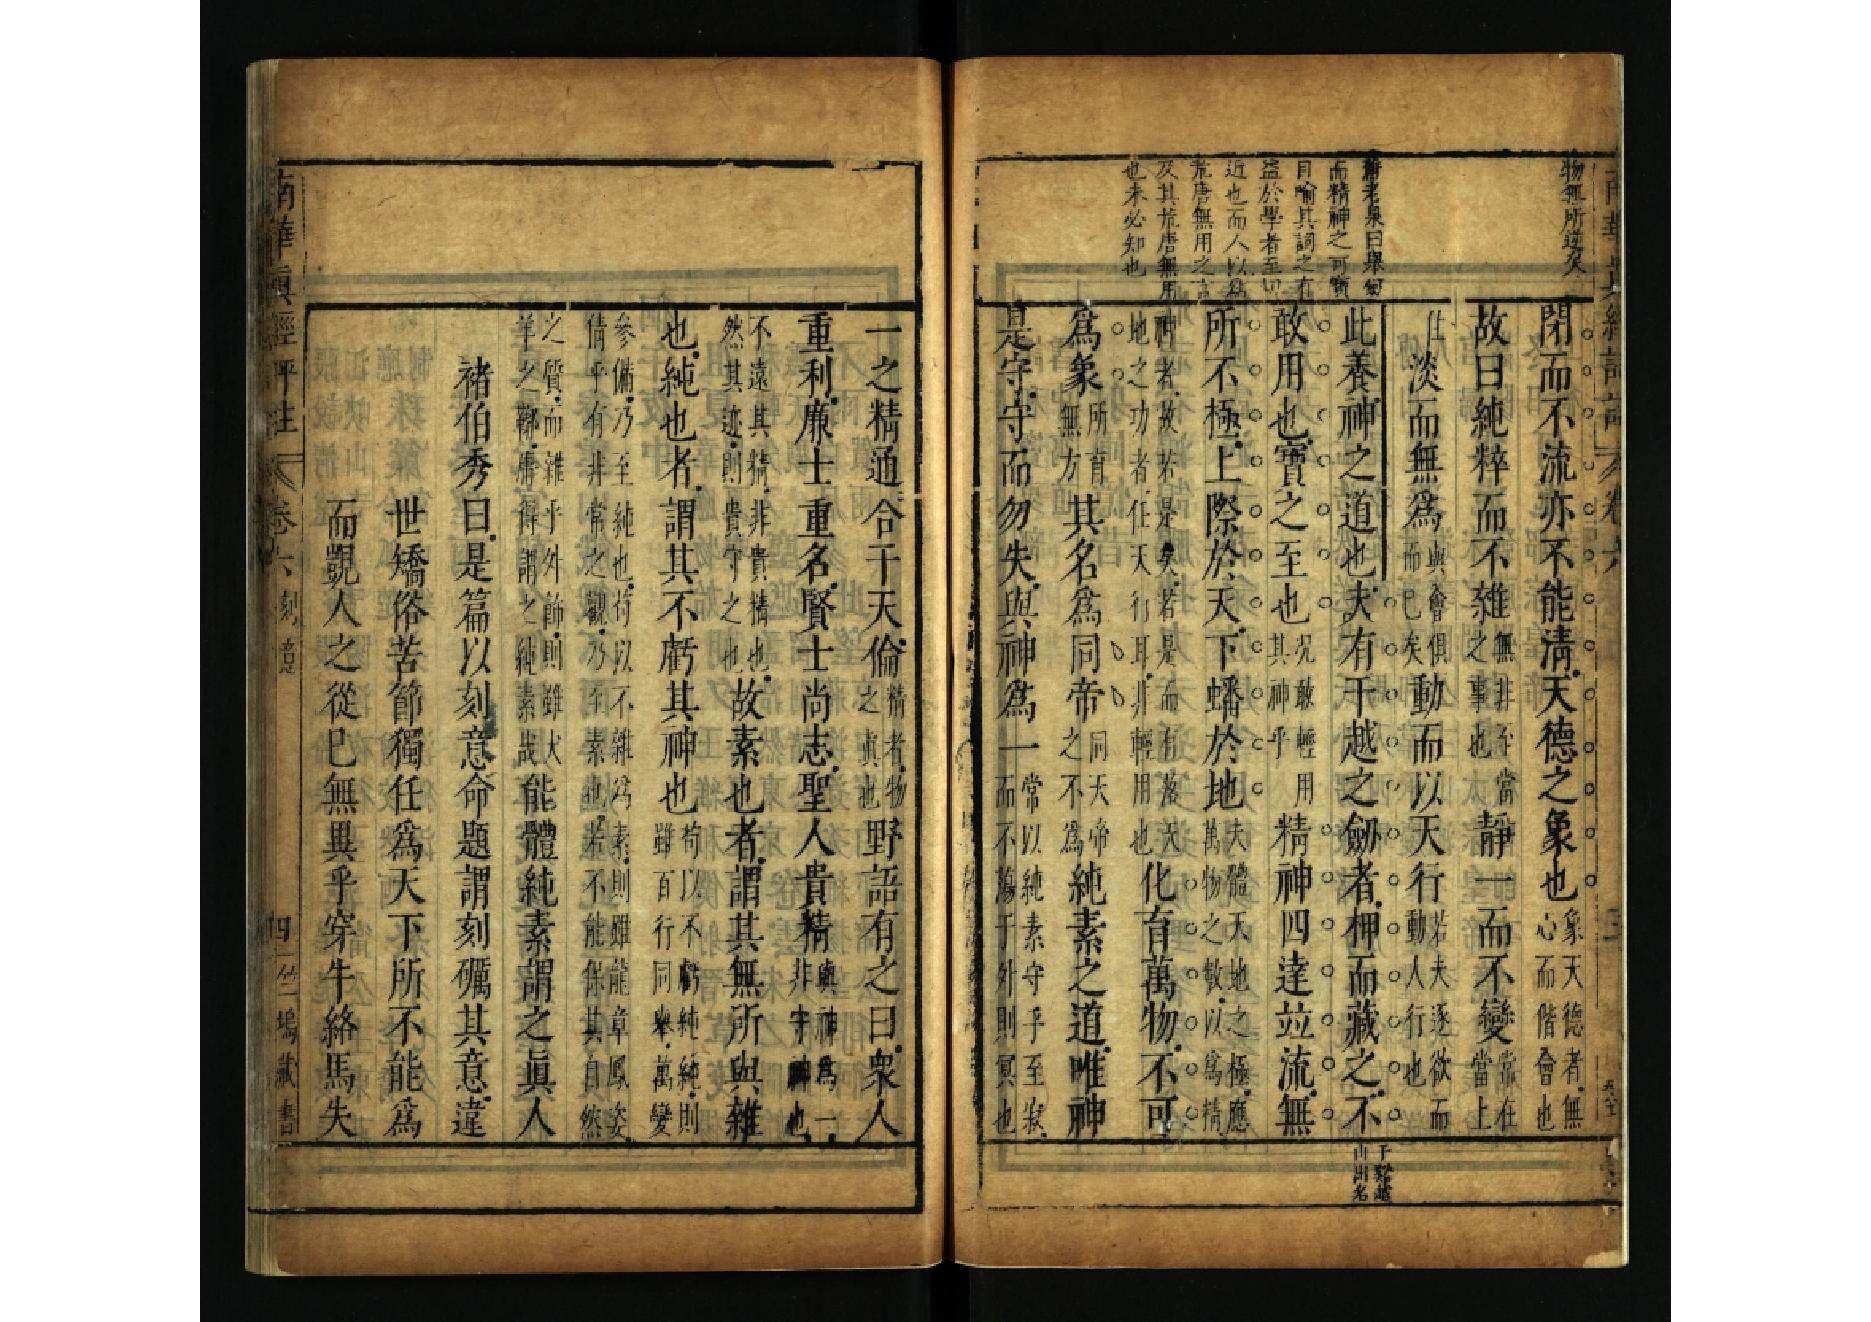 物無所逆矣
閉而不流亦不能淸天德之象也象天德者無心而偕會也
故曰純粹而不雜無非至當之事也靜一而不變常在當上
住淡而無爲與會俱而已矣動而以天行若夫逐欲而動人行也
舊老泉曰舉
而精神之可寶
目喻其詞之有
益於學者至切
近也而人以爲
荒唐無用之言
及其荒唐無用
也未必知也
此養神之道也夫有干越之劒者柙而藏之不
干谿越山出名
敢用也寶之至也況敢輕用其神乎精神四達竝流無
所不極上際於天下蟠於地夫體天地之極應萬物之數以爲精
神者故若是矣若是而有落天地之功者任天行耳非輕用也化育萬物不可
爲象所育無方其名爲同帝同天帝之不爲純素之道唯神
是守守而勿失與神爲一常以純素守乎至寂而不蕩于外則冥也
一之精通合于天倫精者物之眞也野語有之曰衆人
重利廉士重名賢士尚志聖人貴精與神爲一非守神也
不遠其精非貴精也然其迹則貴守之也故素也者謂其無所與雜
也純也者謂其不虧其神也苟以不虧爲純則雖百行同舉萬變
參備乃至純也苟以不雜爲素則雖龍章鳳姿倩乎有非常之觀乃至素也若不能保其自然
之質而雜乎外飾則雖犬羊之鞹庸得謂之純素哉能體純素謂之眞人
褚伯秀曰是篇以刻意命題謂刻礪其意違
世矯俗苦節獨任爲天下所不能爲
而覬人之從已無異乎穿牛絡馬失
南華眞經評註
卷六
刻意
四
竺塢藏書